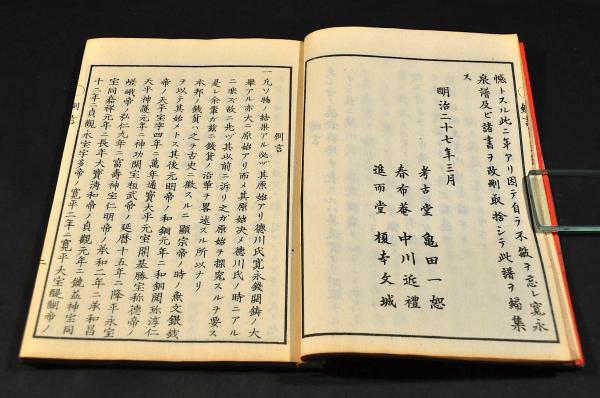 憾トスル此ニ年アリ因テ自ラ不敏ヲ忘レ寬永
泉譜及ビ諸書ヲ改刪取捨シテ此譜ヲ編集
ス
明治二十七年三月
考古堂 亀田一恕
春布菴 中川近禮
進而堂 榎本文城
例言
一凡ソ物ノ結果アル必ヅ其原始アリ德川氏寬永錢開鋳ノ大
畢アル亦大ニ原始アリ而メ其原始決メ德川氏ノ時ニアル
ニ非ズ故ニ先ヅ其以前ニ泝リ之ガ原始ヲ探究スルヲ要ス
是レ余輩ガ茲ニ錢貨ノ沿革ヲ畧述スル所以ナリ
本邦ノ錢貨ハ之ヲ古史ニ徵スルニ顯宗帝ノ時ノ魚文銀錢
ヲ以テ其始メトス其後元明帝ノ和銅元年ニ和銅開珎淳仁
帝ノ天平宝字四年ニ萬年通寳大平元宝開基勝宝称德帝ノ
天平神護元年ニ神功開宝桓武帝ノ延曆十五年ニ隆平永宝
嵯峨帝ノ弘仁九年ニ富壽神宝仁明帝ノ承和二年ニ承和昌
宝同嘉祥元年ニ長年大寳清和帝ノ貞觀元年ニ饒益神宝同
十二年ニ貞觀永宝宇多帝ノ寬平二年ニ寬平大宝醍醐帝ノ
例言